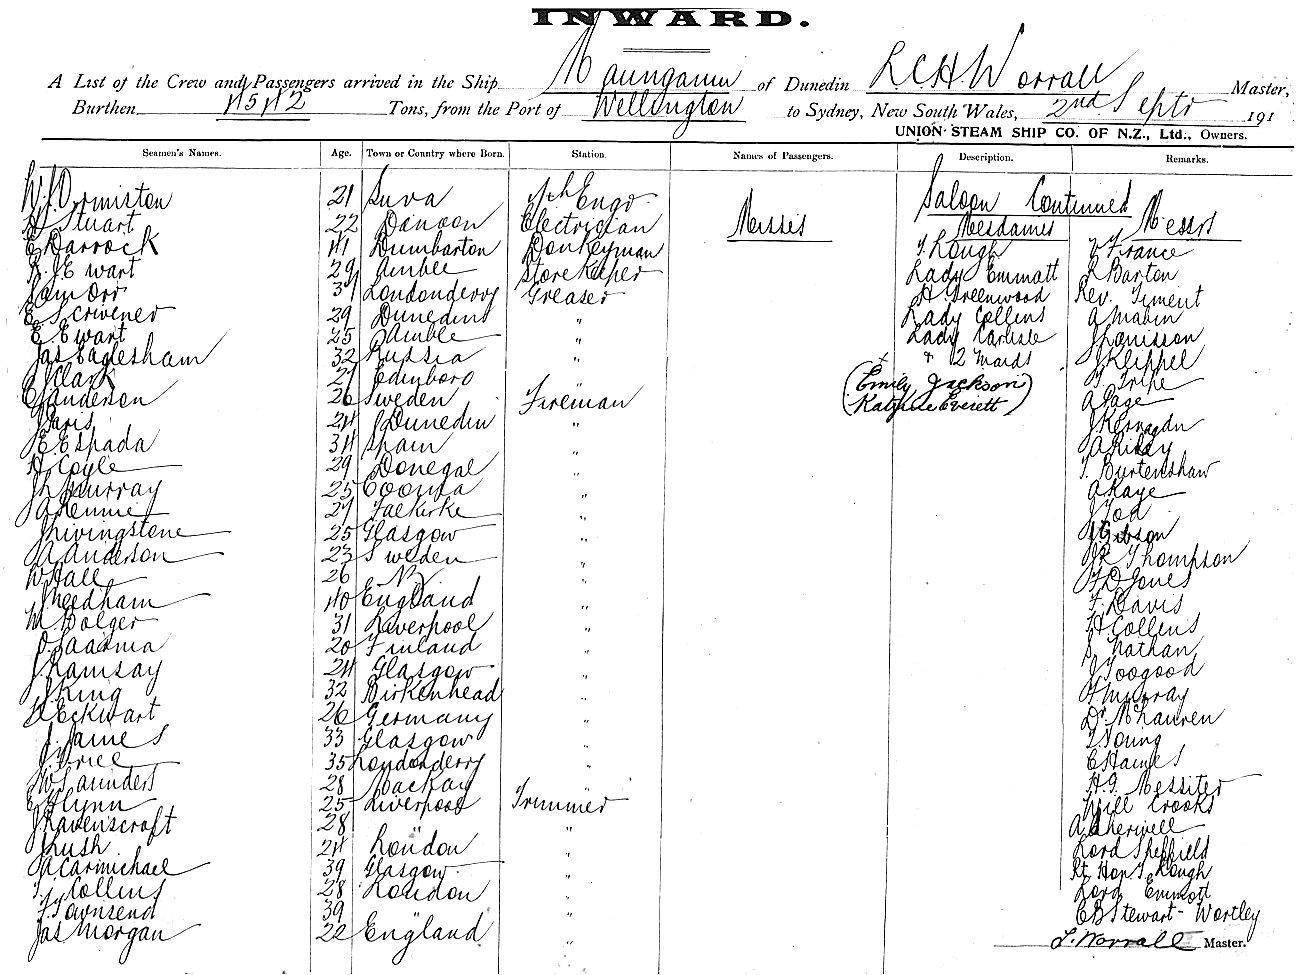 INWARD.
A List of the Crew and Passengers arrived in the Ship Maunganui of Dunedin L C H Worrall Master,
Burthen 4512 Tons, from the Port of Wellington to Sydney, New South Wales, 2nd Septr 191
UNION STEAM SHIP CO. OF N.Z., Ltd., Owners.
Seamen's Names. Age. Town or Country where Born. Station. Names of Passengers. Description. Remarks.
Saloon Continued
W J Ormiston 21 Suva Engr Misses Mesdames Messrs
H Stuart 22 Danoon Electrician T. Rough France
E Darrock 41 Dumbarton Donkeyman Lady Emmott R Barton
R. J. Ewart 29 Amble Storekeeper H Greenwood Rev. Timent
Sam Orr 37 Londonderry Greaser Lady Collins A Mabin
E Scrivener 29 Dunedin " Lady Carlisle
E Ewart 25 Amble " + 2 Maids J Keippel
Jas Eaglesham 32 Russia " (Emily Jackson) T Tripe
J Clark 27 Edinboro " Everett) A Page
C Anderson 26 Sweden Fireman
J Paris 24 Dunedin " A Riley
E Espada 34 Spain " T. Burtenshaw
H Coyle 29 Donegal " A Kaye
J L Murray 25 Cooma " J Tod
A Rennie 27 Falkirke " Gibson
J Livingstone 25 Glasgow " J R Thompson
A Anderson 23 Sweden " F D Jones
W Hall 26 N Z " F. Davis
J Needham 40 England " H Collins
M Bolger 31 Liverpool " S. Nathan
O Saarma 20 Finland " J Toogood
J Ramsay 24 Glasgow " F Murray
J King 32 Birkenhead " Dr McLauren
R Eckwart 26 Germany " T Young
J. James 33 Glasgow " C Haines
J Price 35 Londonderry " H. G. Messiter
W Saunders 28 Mackay " Will Crooks
E Flynn 25 Liverpool Trimmer A Sherwell
J Ravenscroft 28 " " Lord Sheffield
J Rush 24 London " Rt Hon T. Rough
A Carmichael 39 Glasgow " Lord Emmott
T. J. Collins 28 London " C B Stewart-Wortley
F. Townsend 39 " "
Jas Morgan 22 England "
L. Worrall Master.